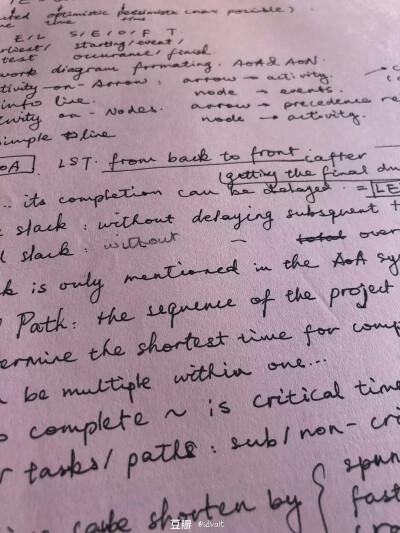 optimistic pessimistic (max possible)
time time
E/L S/E/O/F T
starting/event/
occurance/finish
work diagram formating. AOA & AON.
tivity on-Arrow: arrow → activity.
info line. node → events.
tivity on-Nodes. arrow → precedence re
node → activity.
simple line
OA. LST. from back to front (after
(getting the final du
... its completion can be delayed. = LE
e slack: without delaying subsquent t
l slack: without – total over
k is only mentioned in the AoA sy
Path: the sequence of the project
termine the shortest time for comp
n be multiple within one...
o complete ~ is critical time
r tasks/paths: sub/non-cri
can be shorten by { spen
fast
豆瓣 @idvait